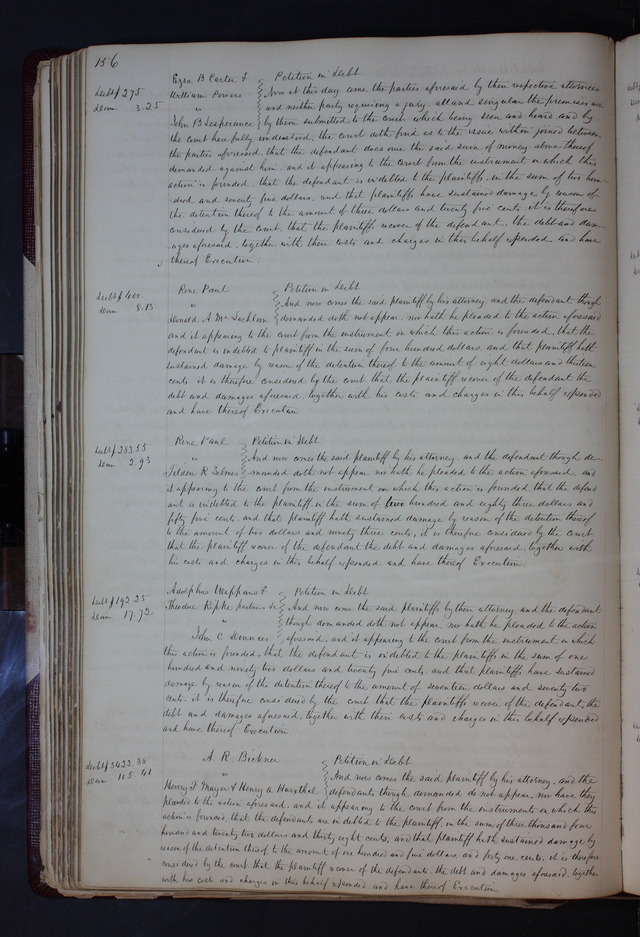 156
Ezra B Carter & Petition in Debt
Debt $ 275 William Powers Now at this day come the parties aforesaid by their respective attorneys
Dam 3.25 " and neither party requiring a jury, all and singular the premises are
John B Lesperance by them submitted to the court which being seen and heard and by
the court here fully understood, the court doth find as to the issue within joined between
the parties aforesaid, that the defendant does owe the said sum of money above thereof
demanded against him, and it appearing to the court from the instrument on which this
action is founded, that the defendant is indebted to the plaintiffs, in the sum of two hun-
dred and seventy five dollars, and that plaintiffs have sustained damage by reason of
the detention thereof to the amount of three dollars and twenty five cents, it is therefore
considered by the court, that the plaintiffs recover of the defendant, the debt and dam-
ages aforesaid, together with their costs and charges in this behalf expended and have
thereof Execution.
Rene Paul Petition in Debt
Debt $ 400. " And now comes the said plaintiff by his attorney, and the defendant though
Dam 8.13 Donald A McLachlan demanded doth not appear, nor hath he pleaded to the action aforesaid
and it appearing to the court from the instrument on which this action is founded, that the
defendant is indebted to plaintiff in the sum of four hundred dollars, and that plaintiff hath
sustained damage by reason of the detention thereof to the amount of eight dollars and thirteen
cents it is therefore considered by the court that the plaintiff recover of the defendant the
debt and damages aforesaid, together with his costs and charges in this behalf expended
and have thereof Execution
Rene Paul Petition in Debt
Debt $ 283.55 " And now comes the said plaintiff by his attorney, and the defendant though de-
Dam 2.93 Tilden R manded doth not appear nor hath he pleaded to the action aforesaid, and
it appearing to the court from the instrument on which this action is founded that the defend
ant is indebted to the plaintiff in the sum of two hundred and eighty three dollars and
fifty five cents, and that plaintiff hath sustained damage by reason of the detention thereof
to the amount of two dollars and ninety three cents, it is therefore considered by the court
that the plaintiff recover of the defendant the debt and damages aforesaid, together with
his costs and charges in this behalf expended and have thereof Execution.
Adolphus & Petition in Debt
Debt $ 192.25 Theodore Ripke, partners &c And now come the said plaintiffs by their attorney, and the defendant
Dam 17.72 " though demanded doth not appear, nor hath he pleaded to the action
John C aforesaid, and it appearing to the court from the instrument on which
the action is founded, that the defendant is indebted to the plaintiffs in the sum of one
hundred and ninety two dollars and twenty five cents, and that plaintiffs have sustained
damage by reason of the detention thereof to the amount of seventeen dollars and seventy two
cents, it is therefore considered by the court that the plaintiffs recover of the defendant, the
debt and damages aforesaid, together with their costs and charges in this behalf expended
and have thereof Execution
A. R. Bickner Petition in Debt
Debt $ 3422.38 " And now comes the said plaintiff by his attorney, and the
Dam 105.41 Henry T & Henry A defendants though demanded do not appear, nor have they
pleaded to the action aforesaid, and it appearing to the court from the instruments on which this
action is founded, that the defendants, are indebted to the plaintiff, in the sum of three thousand four
hundred and twenty two dollars and thirty eight cents, and that plaintiff hath sustained damage by
reason of the detention thereof, to the amount of one hundred and five dollars and forty one cents, it is therefore
considered by the court, that the plaintiff recover of the defendants, the debt and damages aforesaid, together
with his costs and charges in this behalf expended and have thereof Execution